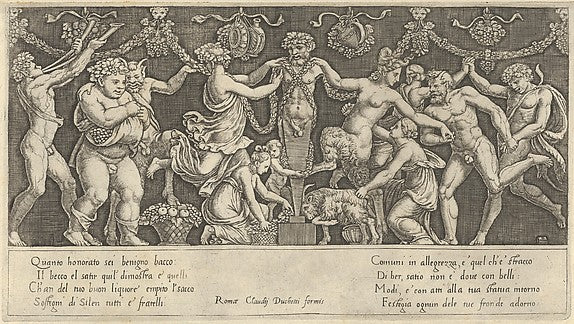 Quanto honorato sei benigno bacco
Il becco el satir quil' dimostra e' quelli
Ch'an del tuo buon liquore' empito l'sacco
Soffion di Silen tutti e' fratelli:
Romæ Claudij Ducheti formis
Comuni in allegrezza, e' quel ch'e' stracco
Di ber, satio non e' dout con belli:
Modi, e' con atti alla tua statua intorno
Festegia ognun dele tue fronde adorno